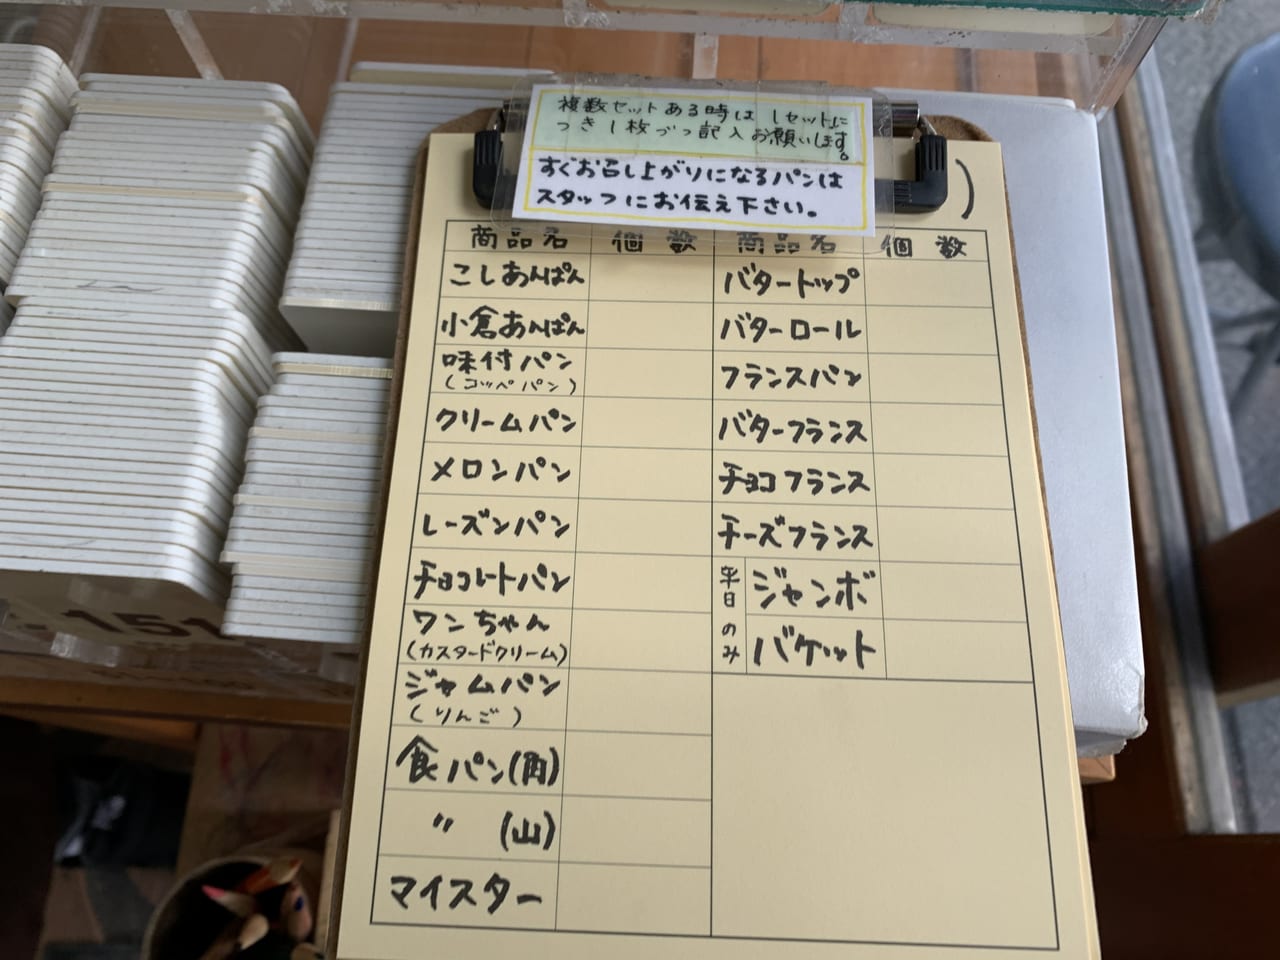 複数セットある時は1セットに
つき1枚づつ記入お願いします。
すぐお召し上がりになるパンは
スタッフにお伝え下さい。
)
商品名 個数 商品名 個数
こしあんぱん
小倉あんぱん
味付パン
(コッペパン)
クリームパン
メロンパン
レーズンパン
チョコレートパン
ワンちゃん
(カスタードクリーム)
ジャムパン
(りんご)
食パン(角)
〃 (山)
マイスター
バタートップ
バターロール
フランスパン
バターフランス
チョコフランス
チーズフランス
平日のみ
ジャンボ
バケット
151